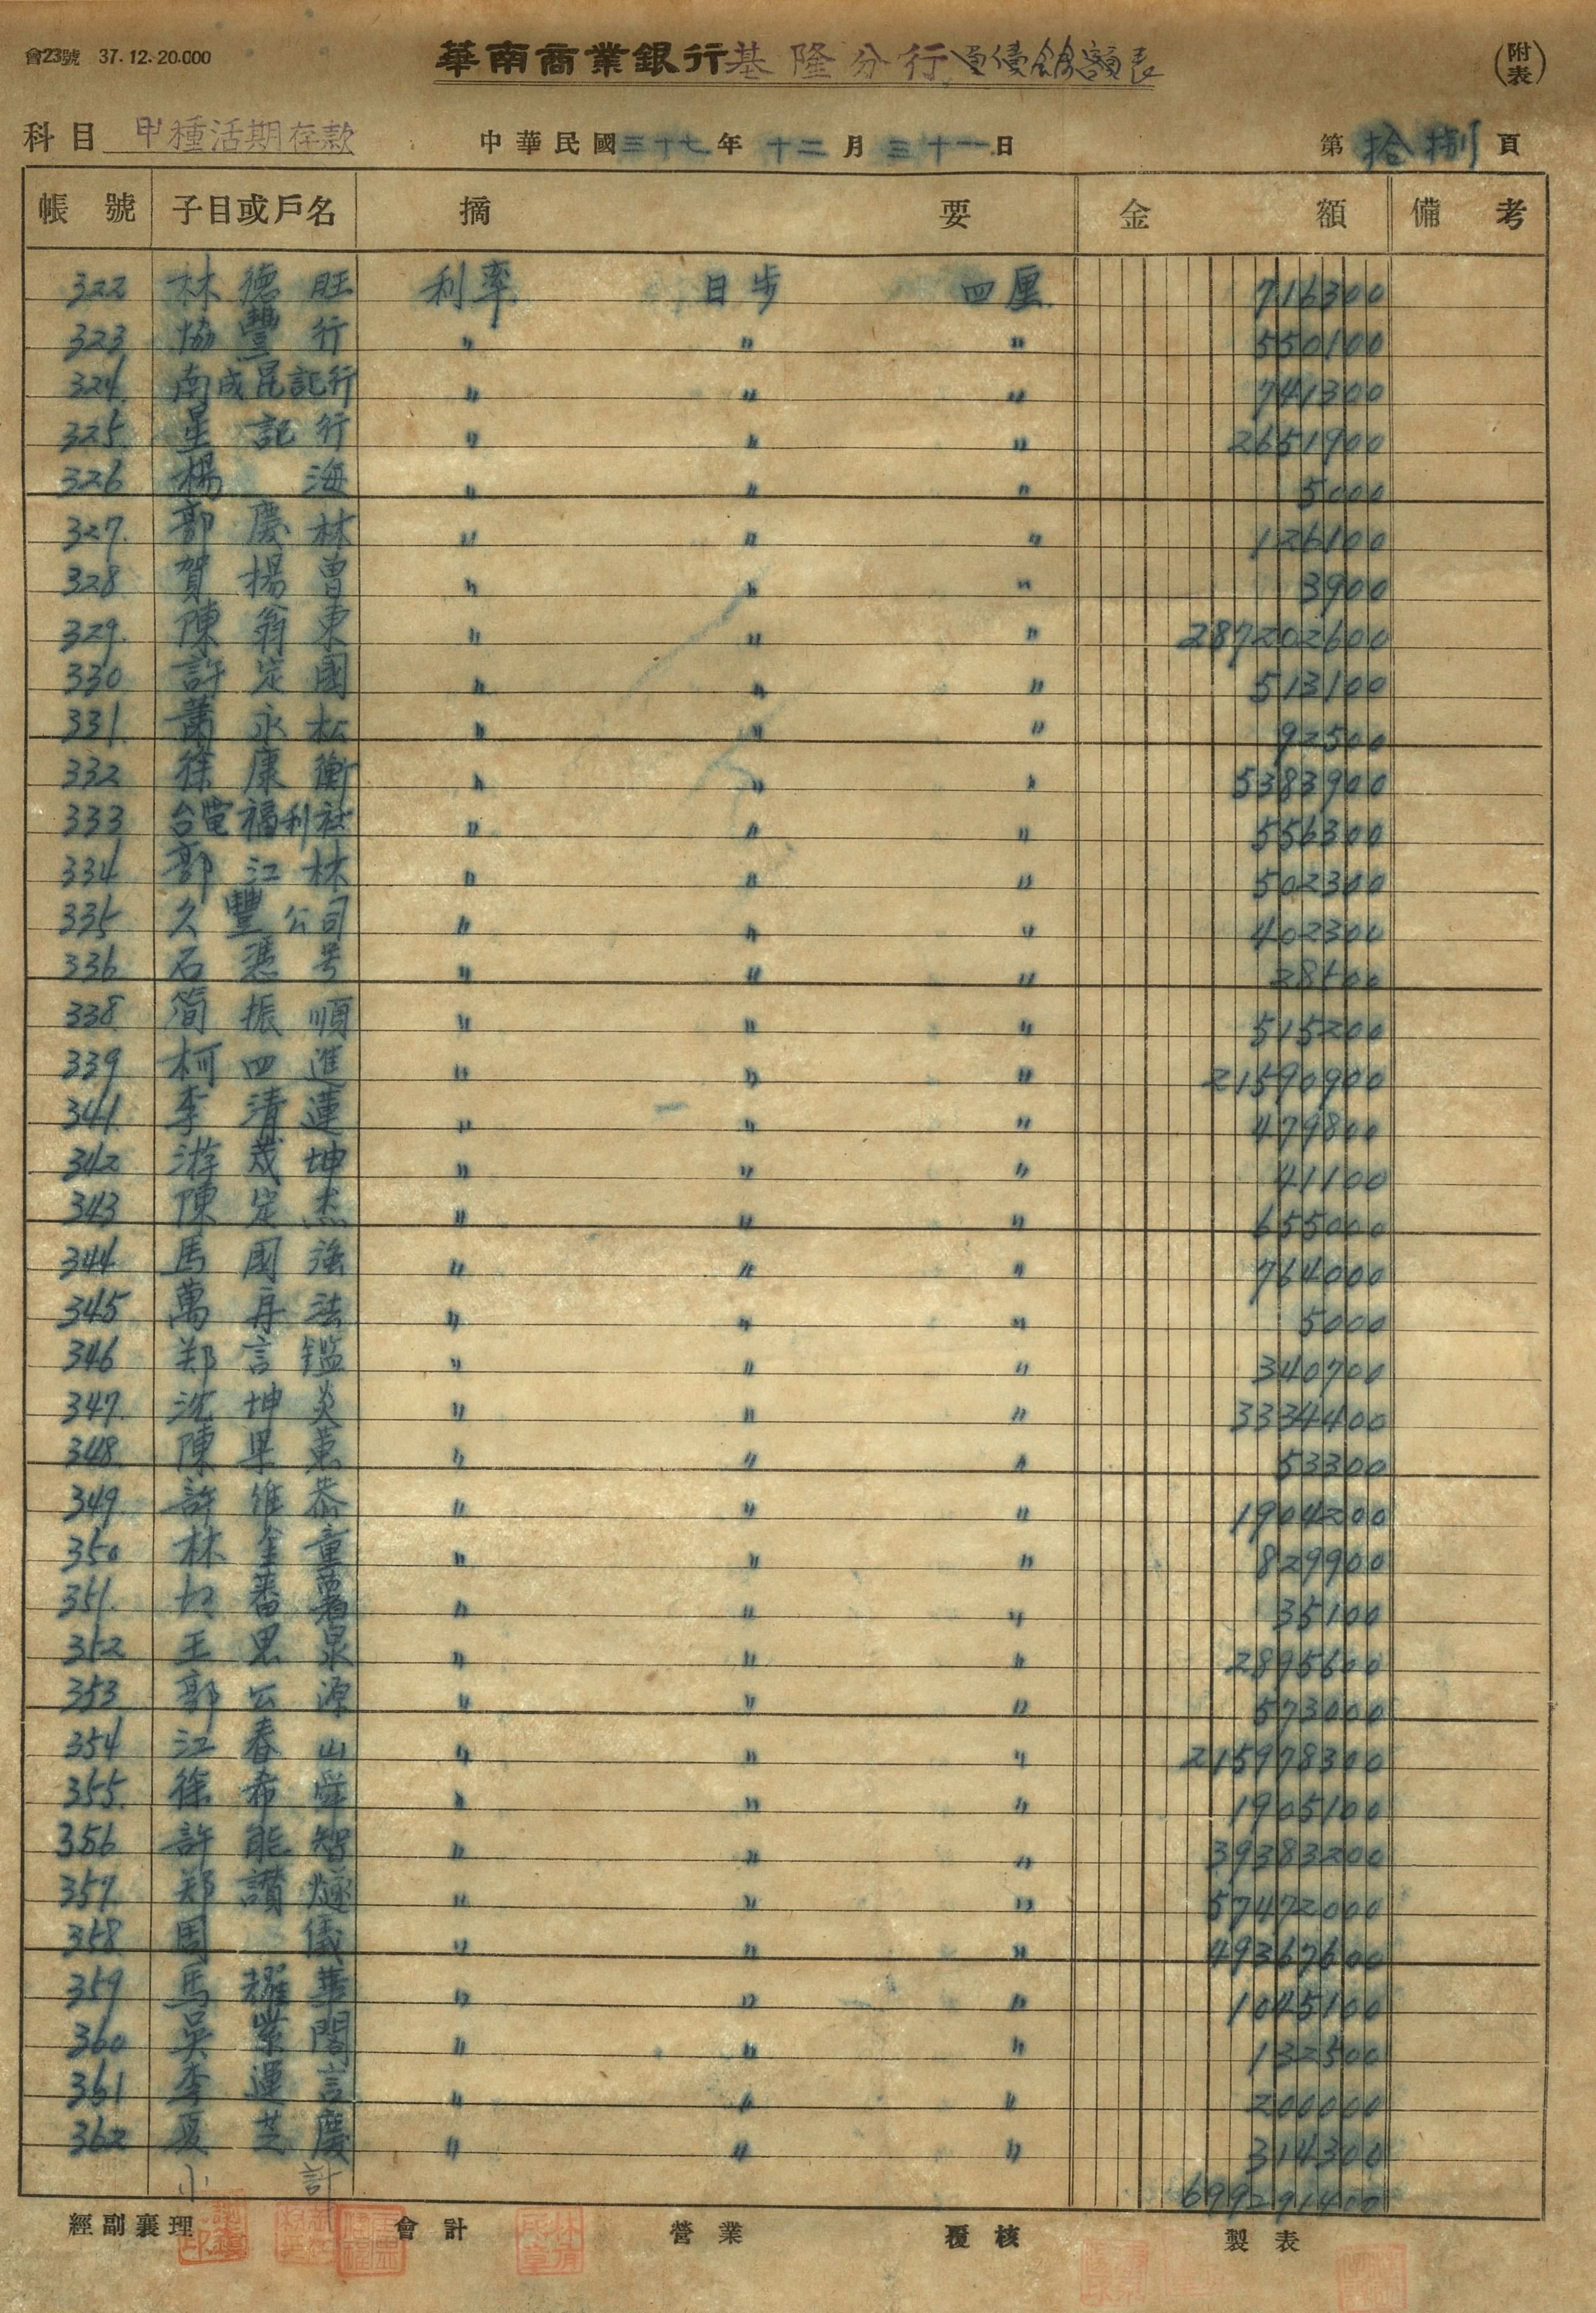 會23號 37.12.20.000
華南商業銀行基隆分行負債餘額表
(附表)
科目 甲種活期存款 中華民國三十七年十二月三十一日 第拾捌頁
帳號 子目或戶名 摘要 金額 備考
322 林德旺 利率 日步 四厘 716300
323 協豐行 〃 〃 〃 550100
324 南成昆記行 〃 〃 〃 741300
325 星記行 〃 〃 〃 2651900
326 楊海 〃 〃 〃 5000
327 郭慶林 〃 〃 〃 126100
328 賀揚曾 〃 〃 〃 3900
329 陳翁東 〃 〃 〃 287202600
330 許定國 〃 〃 〃 513100
331 蕭永松 〃 〃 〃 92500
332 徐康衡 〃 〃 〃 5383900
333 台電福利社 〃 〃 〃 556300
334 郭江林 〃 〃 〃 502300
335 久豐公司 〃 〃 〃 402300
336 石憑号 〃 〃 〃 28500
338 簡振順 〃 〃 〃 515200
339 柯四進 〃 〃 〃 21590900
341 李清蓮 〃 〃 〃 479800
342 游茂坤 〃 〃 〃 41100
343 陳定杰 〃 〃 〃 655000
344 馬國強 〃 〃 〃 764000
345 萬再法 〃 〃 〃 5000
346 郑言鑑 〃 〃 〃 340700
347 沈坤炎 〃 〃 〃 3334400
348 陳果薰 〃 〃 〃 53300
349 許維恭 〃 〃 〃 1904200
350 林金童 〃 〃 〃 829900
351 蕃薯 〃 〃 〃 35100
352 王思泉 〃 〃 〃 2895600
353 郭公源 〃 〃 〃 573000
354 江春山 〃 〃 〃 215978300
355 徐希 〃 〃 〃 1905100
356 許能智 〃 〃 〃 39383200
357 郑讚燧 〃 〃 〃 57472000
358 周儀 〃 〃 〃 49367600
359 馬耀華 〃 〃 〃 1045100
360 吳紫閣 〃 〃 〃 132500
361 李運言 〃 〃 〃 200000
362 夏芝慶 〃 〃 〃 314300
小計 699291400
經副襄理 會計 營業 覆核 製表